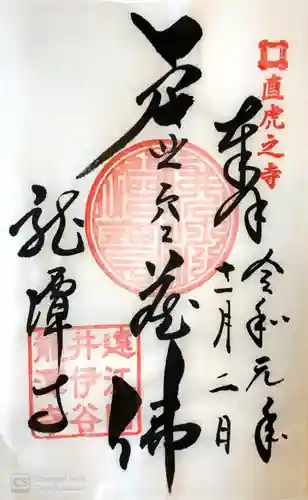 直虎之寺
奉拝
令和元年
十一月二日
虚空蔵佛
龍潭寺
遠江國
井伊谷
龍潭寺
CS Scanned with CamScanner